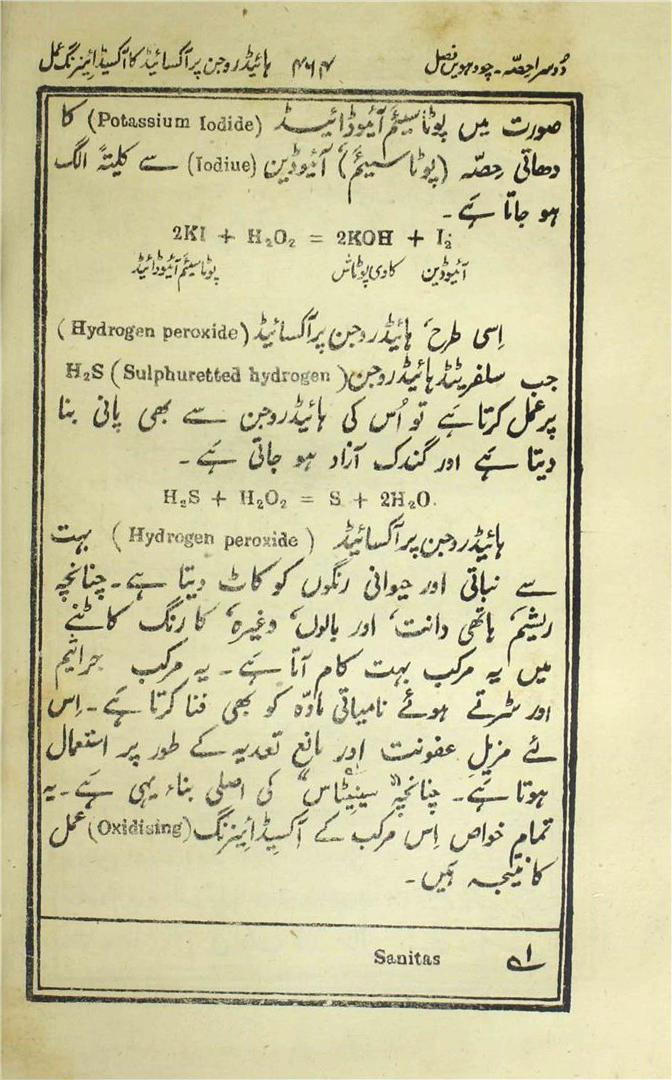 دُوسرا حِصّہ ۔ چودہویں فصل ۴۶۴ ہائیڈروجن پرآکسائیڈ کا آکسیڈائیزنگ عمل
صورت میں پوٹاسیئم آئیوڈائیڈ (Potassium Iodide) کا
دھاتی حِصّہ (پوٹاسیئم) آئیوڈین (Iodiue) سے کلیتہً الگ
ہو جاتا ہے ۔
2KI + H₂O₂ = 2KOH + I₂
آئیوڈین کاوی پوٹاش پوٹاسیئم آئیوڈائیڈ
اِسی طرح، ہائیڈروجن پرآکسائیڈ (Hydrogen peroxide)
جب سلفریٹڈ ہائیڈروجن (Sulphuretted hydrogen) H₂S
پر عمل کرتا ہے تو اُس کی ہائیڈروجن سے بھی پانی بنا
دیتا ہے اور گندک آزاد ہو جاتی ہے ۔
H₂S + H₂O₂ = S + 2H₂O.
ہائیڈروجن پرآکسائیڈ (Hydrogen peroxide) بہت
سے نباتی اور حیوانی رنگوں کو کاٹ دیتا ہے ۔ چنانچہ
ریشم، ہاتھی دانت، اور بالوں، وغیرہ، کا رنگ کاٹنے
میں یہ مرکب بہت کام آتا ہے ۔ یہ مرکب جراثیم
اور سڑتے ہوئے نامیاتی مادّہ کو بھی فنا کرتا ہے ۔ اِس
لئے مزیلِ عفونت اور مانع تعدیہ کے طور پر استعمال
ہوتا ہے ۔ چنانچہ "سینیٹاس" کی اصلی بناء یہی ہے ۔ یہ
تمام خواص اِس مرکب کے آکسِیڈائِیزنگ (Oxidising) عمل
کا نتیجہ ہیں ۔
۱ے Sanitas